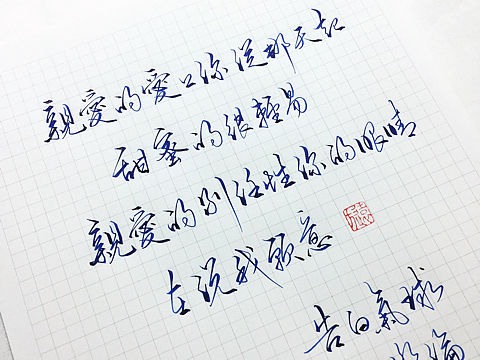 親愛的愛上你從那天起
甜蜜的很輕易
親愛的別任性你的眼睛
在說我願意
告白氣球